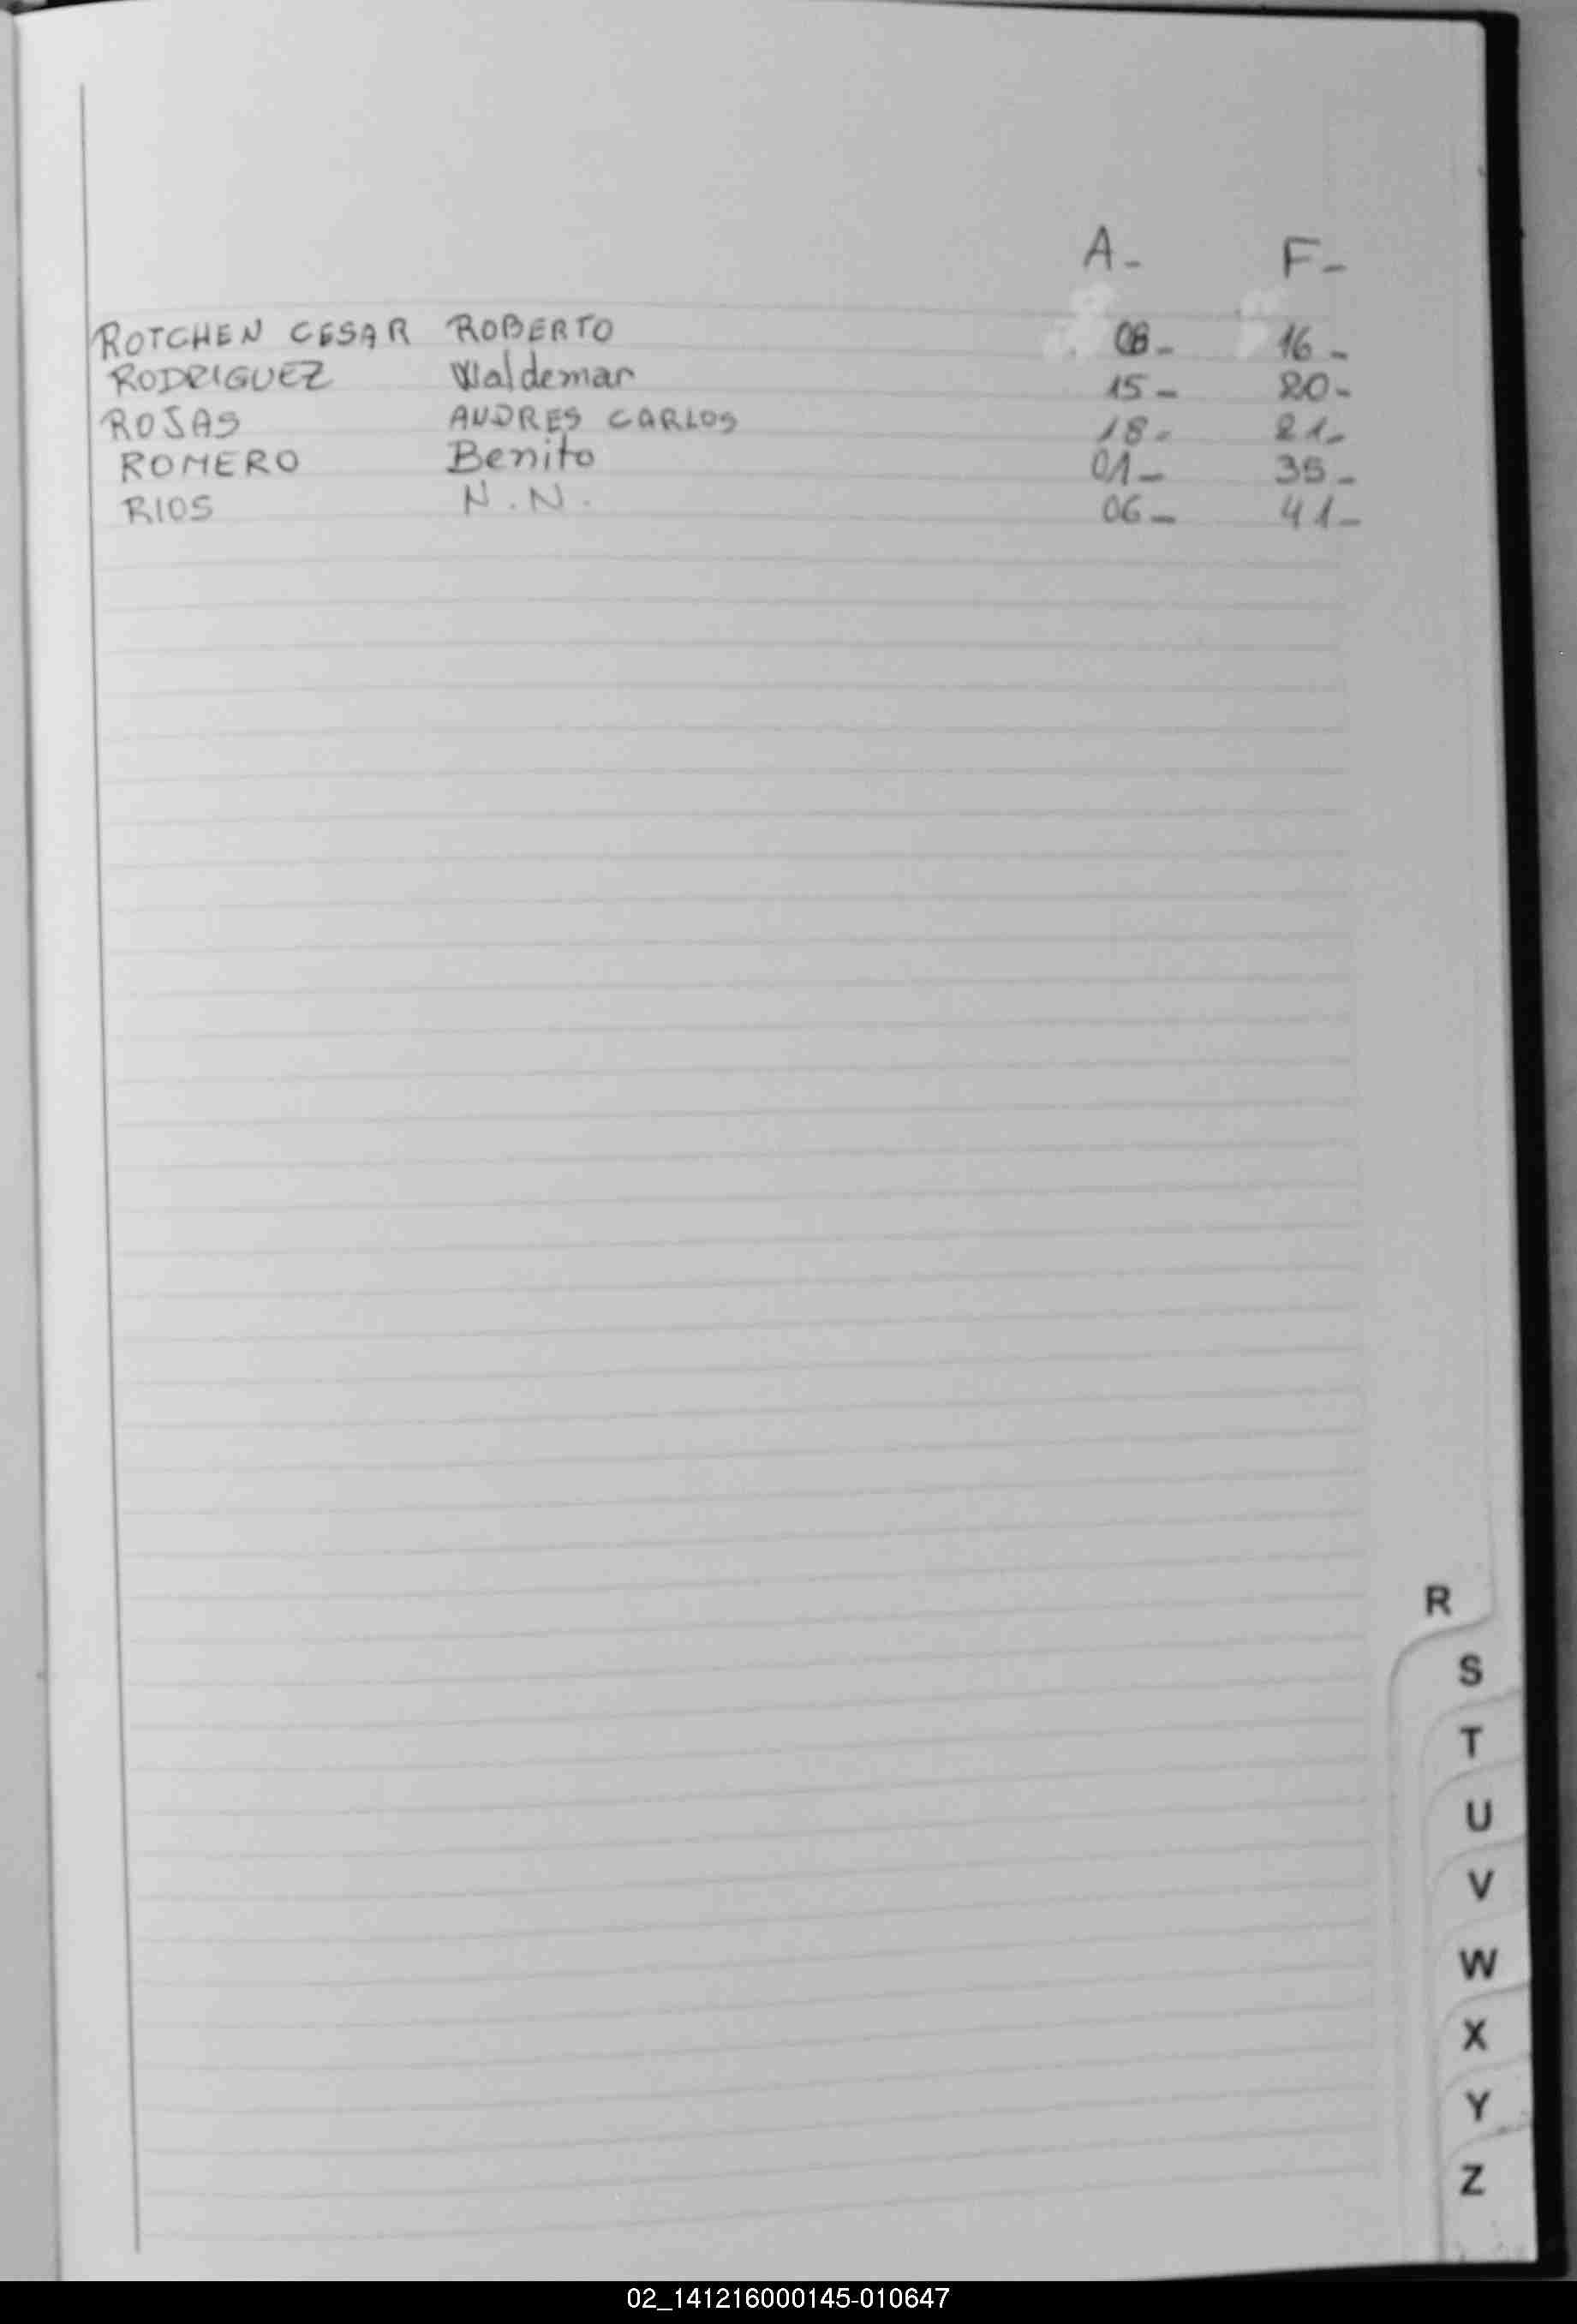 A- F-
ROTCHEN CESAR ROBERTO 08- 16-
RODRIGUEZ Waldemar 15- 20-
ROJAS ANDRES CARLOS 18- 21-
ROMERO Benito 01- 35-
RIOS N.N. 06- 41-
R
S
T
U
V
W
X
Y
Z
02_141216000145-010647